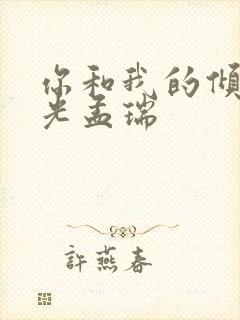 你和我的倾
光孟瑞
許燕春